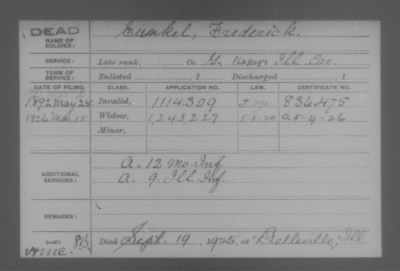 DEAD
NAME OF SOLDIER: Kunkel, Frederick.
SERVICE: Late rank, Co. G, Ill Cav.
TERM OF SERVICE: Enlisted , 1 Discharged , 1
DATE OF FILING. CLASS. APPLICATION NO. LAW. CERTIFICATE NO.
1892 May 24 Invalid, 1114309 836475
1926 Mar 15 Widow, 1243227 5-1-20 A 5-4-26
Minor,
ADDITIONAL SERVICES:
A. 12 Mo. Inf
A. 9. Ill Inf.
REMARKS:
Died Sept. 19, 1925, at Belleville, Ill